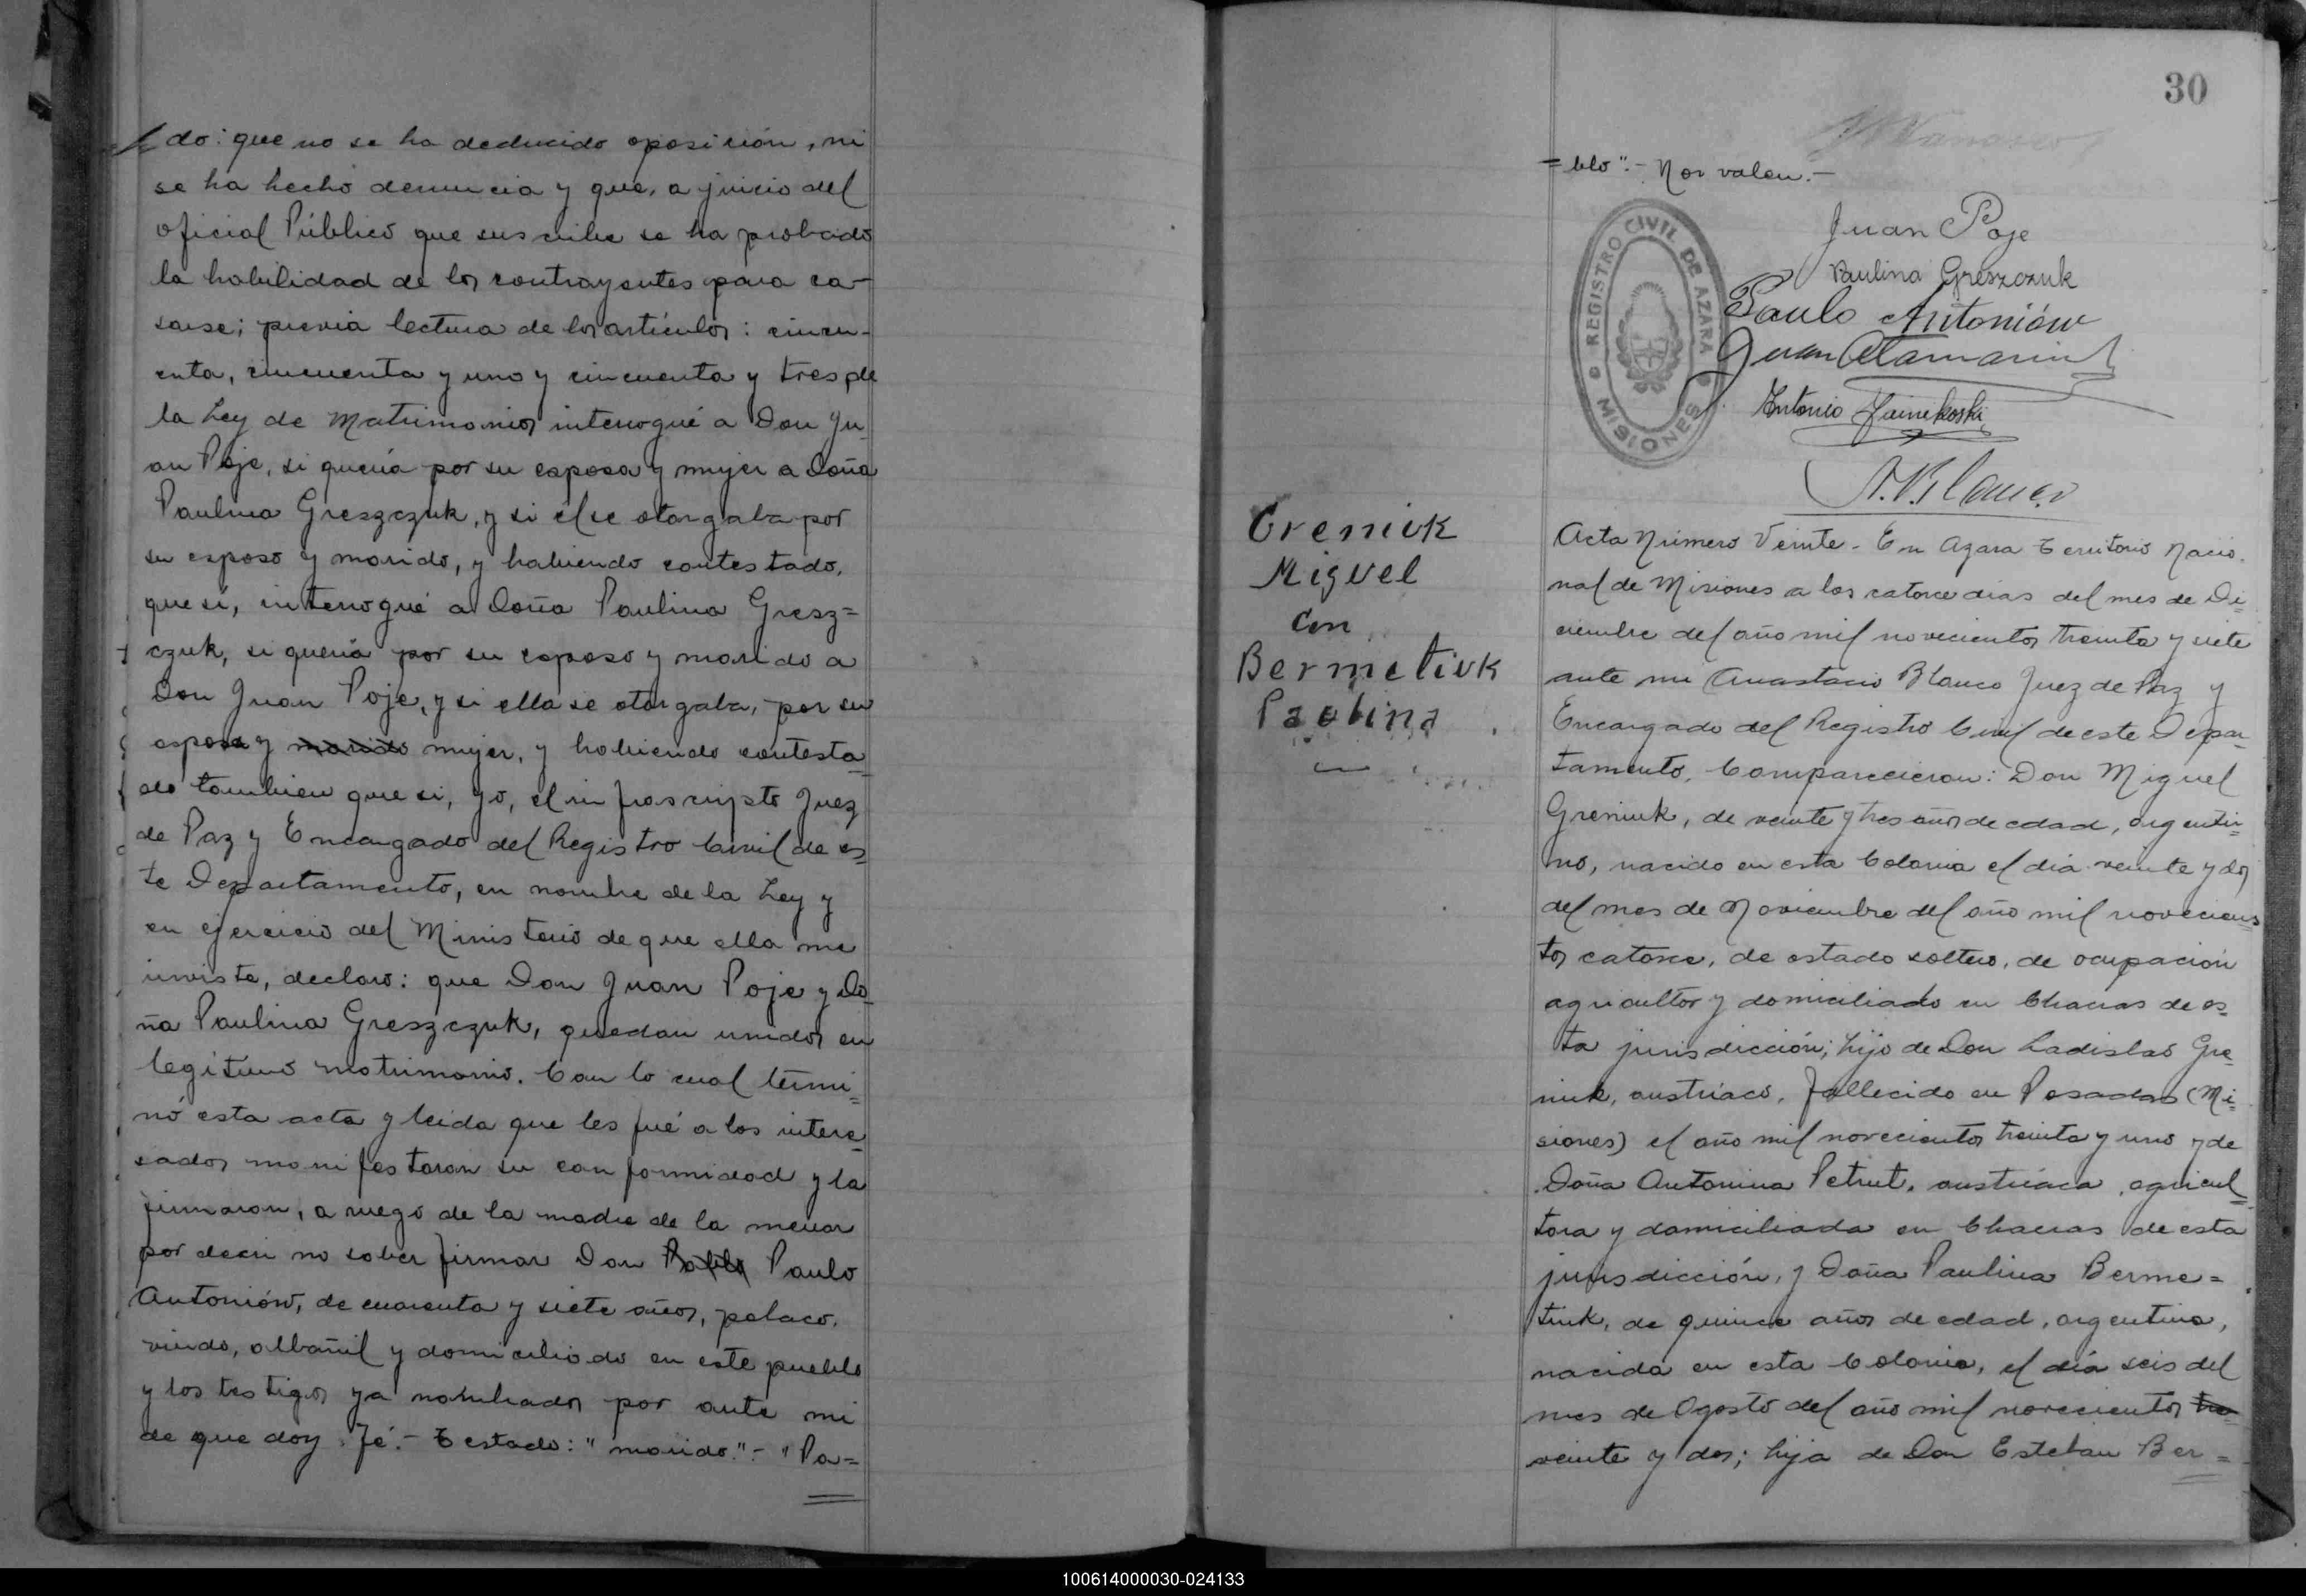 do: que no se ha deducido oposición, ni
se ha hecho denuncia y que, a juicio del
oficial Público que suscribe se ha probado
la habilidad de los contrayentes para ca-
sarse; previa lectura de los artículos: cincu-
enta, cincuenta y uno y cincuenta y tres de
la Ley de Matrimonios interrogué a Don Ju-
an Poje, si quería por su esposa y mujer a Doña
Paulina Greszczuk, y si él se otorgaba por
su esposo y marido, y habiendo contestado,
que sí, interrogué a Doña Paulina Gresz=
czuk, si quería por su esposo y marido a
Don Juan Poje, y si ella se otorgaba, por su
esposa y marido mujer, y habiendo contesta=
do tambien que si, yo, el infrascripto Juez
de Paz y Encargado del Registro Civil de es=
te Departamento, en nombre de la Ley y
en ejercicio del Ministerio de que ella me
inviste, declaro: que Don Juan Poje y Do=
ña Paulina Greszczuk, quedan unidos en
legítimo matrimonio. Con lo cual termi=
nó esta acta y leida que les fué a los intere=
sados manifestaron su conformidad y la
firmaron, a ruego de la madre de la menor
por decir no saber firmar Don Pablo Paulo
Antoniów, de cuarenta y siete años, polaco,
viudo, albañil y domiciliado en este pueblo
y los testigos ya nombrados por ante mi
de que doy fé.- Testado: "marido".- "Pa=
30
=blo".- Nos valen.-
REGISTRO CIVIL DE AZARA
MISIONES
Juan Poje
Paulina Greszczuk
Paulo Antoniów
Juan
Antonio
A. Blanco
Greniuk
Miguel
con
Bermetiuk
Paulina
Acta Número Veinte.- En Azara Territorio Nacio-
nal de Misiones a los catorce dias del mes de Di=
ciembre del año mil novecientos treinta y siete
ante mi Anastacio Blanco Juez de Paz y
Encargado del Registro Civil de este Depar=
tamento, Comparecieron: Don Miguel
Greniuk, de veinte y tres años de edad, argenti=
no, nacido en esta Colonia el día veinte y dos
del mes de Noviembre del año mil novecien=
tos catorce, de estado soltero, de ocupación
agricultor y domiciliado en Chacras de es=
ta jurisdicción; hijo de Don Ladislao Gre=
niuk, austríaco, fallecido en Posadas (Mi=
siones) el año mil novecientos treinta y uno y de
Doña Antonina Petrut, austríaca, agricul=
tora y domiciliada en Chacras de esta
jurisdicción, y Doña Paulina Berme=
tiuk, de quince años de edad, argentina,
nacida en esta Colonia, el día seis del
mes de Agosto del año mil novecientos tre
veinte y dos; hija de Don Esteban Ber=
100614000030-024133